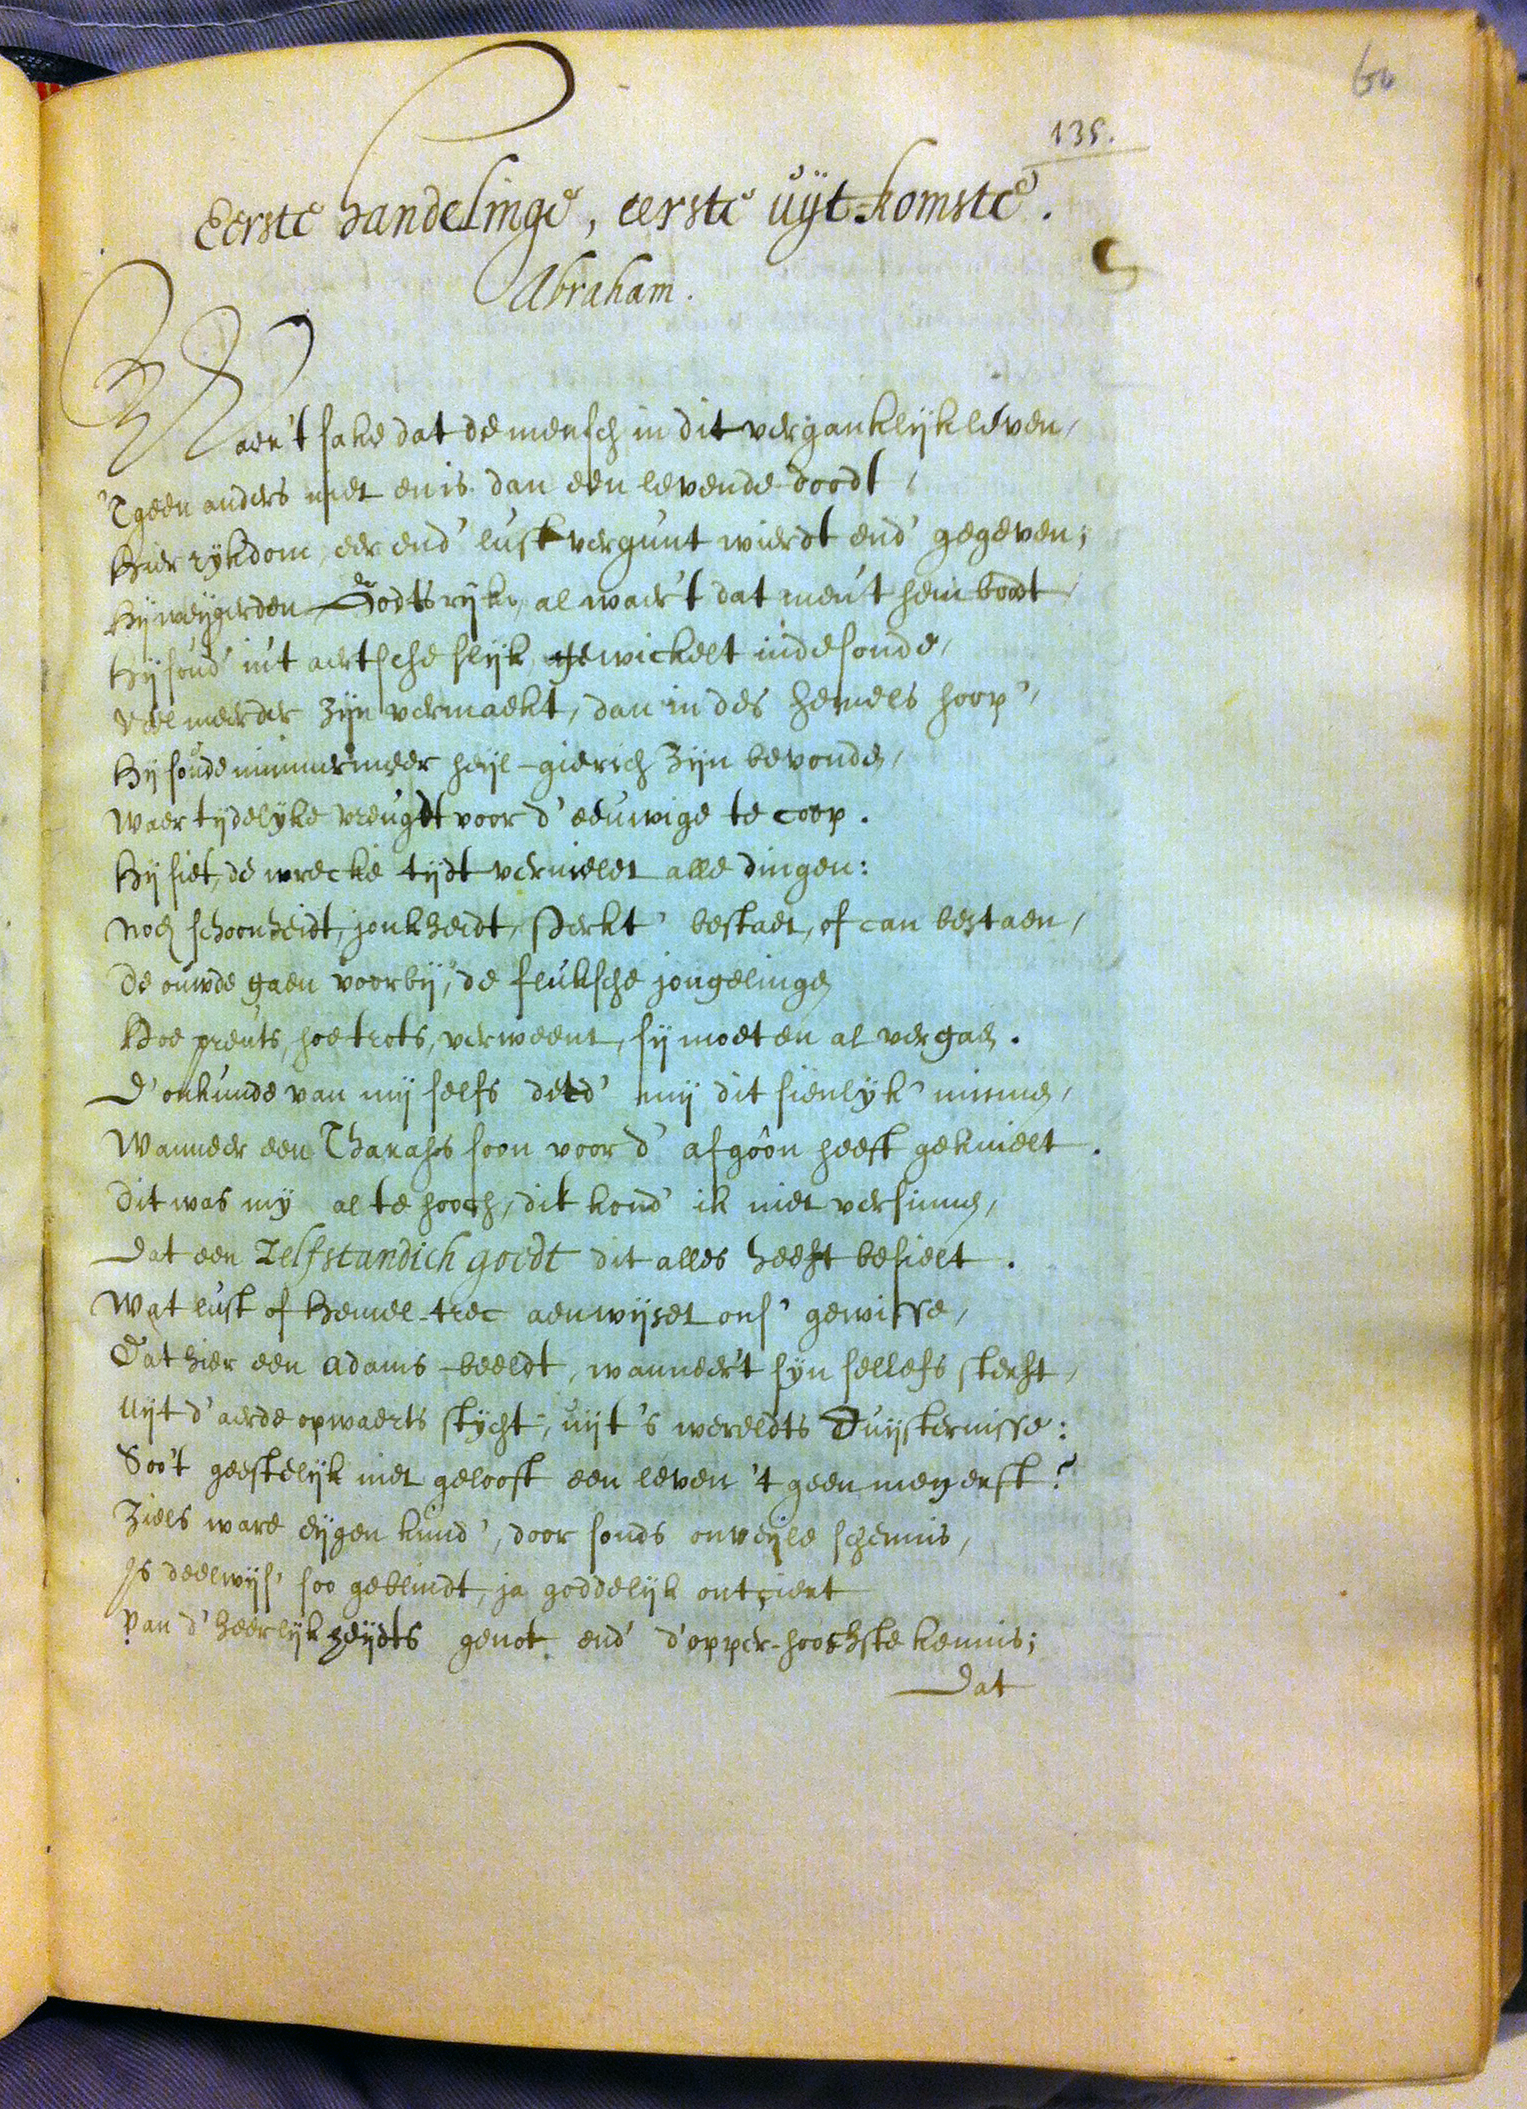 60
135.
Eerste handelinge, eerste uyt-komste.
Abraham.
Waer't sake dat de mensch in dit verganklijk leven,
'Tgeen anders niet en is dan een levende doodt,
Hier rykdom, eer end' lust vergunt wierdt end' gegeven;
Hij weygerden Godts ryke, al waer't dat men't hem boodt,
Hij soud' in't aertsche slijk, gewickelt in de sonde,
Veel meerder zijn vermaekt, dan in des hemels hoop',
Hij soude nimmermeer heyl-gierich zijn bevonden,
Waer tydelyke vreugdt voor d'eeuwige te coop.
Hij siet, de wrecke tydt vernielet alle dingen:
Noch schoonheidt, jonkheidt, sterkt' bestaet, of can bestaen,
De ouwde gaen voorbij, de fluksche jongelingen
Hoe preuts, hoe trots, verweent, sij moeten al vergaen.
D'onkunde van mij selfs deed' mij dit sienlyk' minnen,
Wanneer een Tharahs soon voor d'afgôôn heeft geknielt.
Dit was mij al te hooch, dit kond' ik niet versinnen,
Dat een zelfstandich goedt dit alles heeft besielt.
Wat lust of Hemel-trec aenwijset ons' gewisse,
Dat hier een adams-beeldt, wanneer't sijn sellefs sterft,
Uijt d'aerde opwaerts stycht, uijt 's wereldts duijsternisse:
Soo't geestelijk niet gelooft een leven 't geen men erft?
Ziels ware eygen kund', door sonds onveijle schennis,
Is deelwijs' soo geblindt, ja goddelijk ontciert
Van d'heerlijkheydts genot end' d'opper-hoochste kennis;
Dat